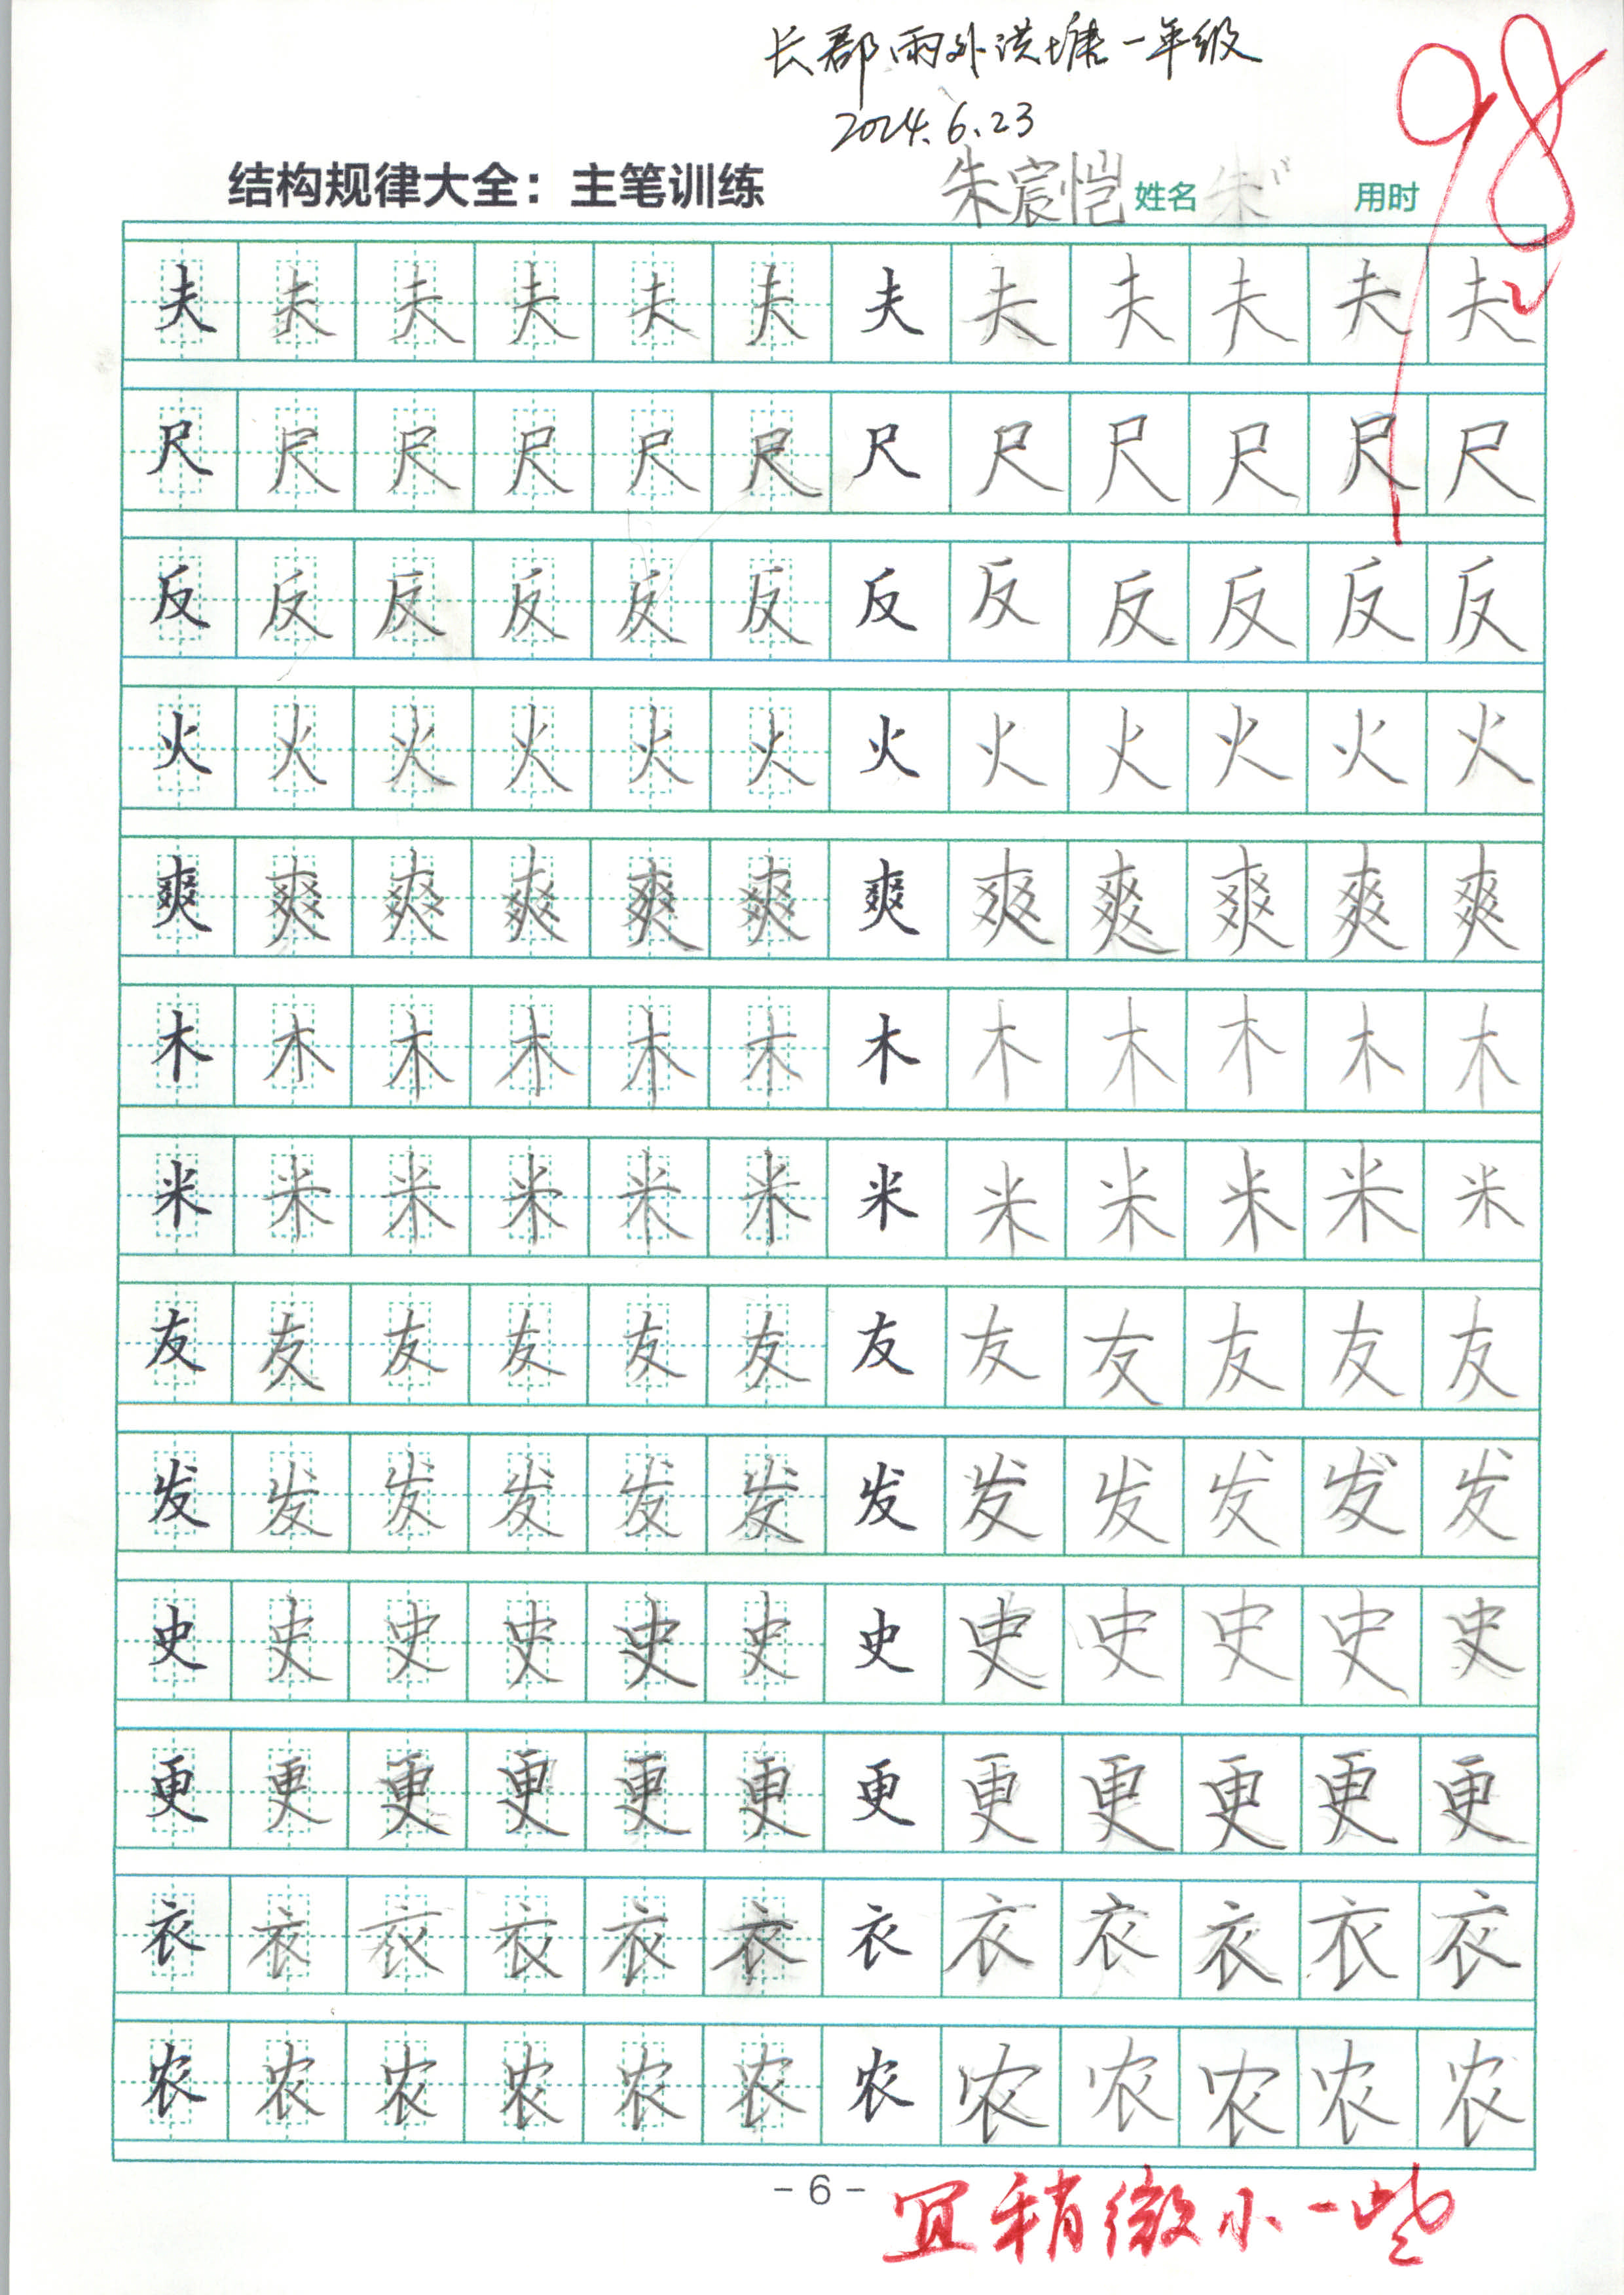 长郡雨外洪塘一年级
2024.6.23
结构规律大全：主笔训练 朱宸恺 姓名 朱 用时
98
夫夫夫夫夫夫夫夫夫夫夫夫
尺尺尺尺尺尺尺尺尺尺尺尺
反反反反反反反反反反反反
火火火火火火火火火火火火
爽爽爽爽爽爽爽爽爽爽爽爽
木木木木木木木木木木木木
米米米米米米米米米米米米
友友友友友友友友友友友友
发发发发发发发发发发发发
史史史史史史史史史史史史
更更更更更更更更更更更更
衣衣衣衣衣衣衣衣衣衣衣衣
农农农农农农农农农农农农
- 6 -
宜稍微小一些